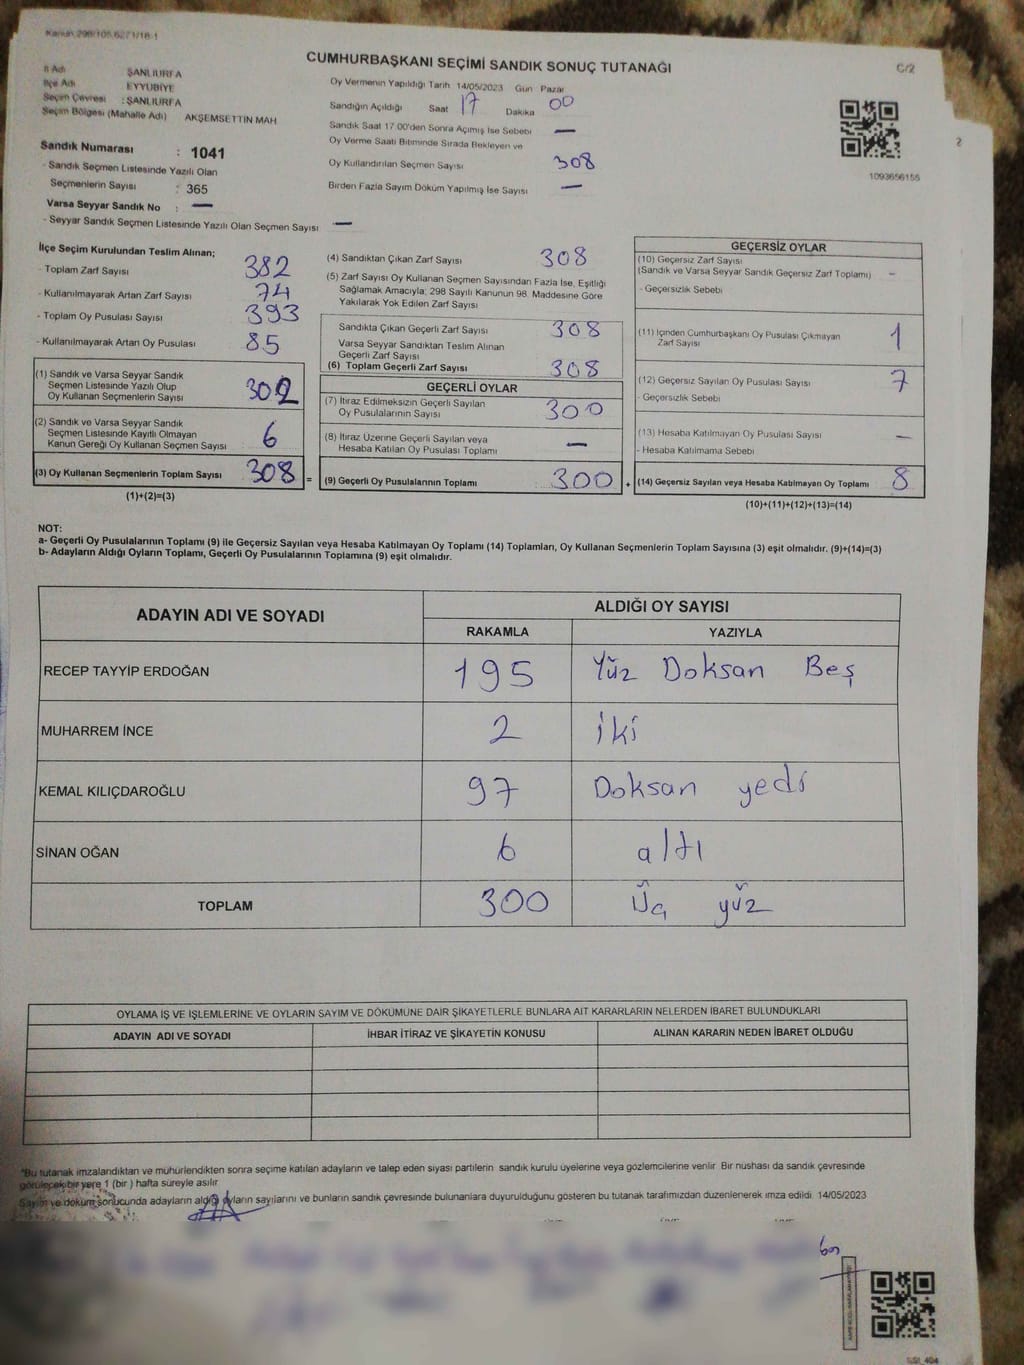 Kanun 298/105.6271/18-1
CUMHURBAŞKANI SEÇİMİ SANDIK SONUÇ TUTANAĞI
C/2
İl Adı ŞANLIURFA
İlçe Adı EYYÜBİYE
Seçim Çevresi : ŞANLIURFA
Seçim Bölgesi (Mahalle Adı) AKŞEMSETTİN MAH
Sandık Numarası : 1041
- Sandık Seçmen Listesinde Yazılı Olan
Seçmenlerin Sayısı : 365
Varsa Seyyar Sandık No : —
- Seyyar Sandık Seçmen Listesinde Yazılı Olan Seçmen Sayısı —
Oy Vermenin Yapıldığı Tarih 14/05/2023 Gün Pazar
Sandığın Açıldığı Saat 17 Dakika 00
Sandık Saat 17:00'den Sonra Açımış İse Sebebi —
Oy Verme Saati Bitiminde Sırada Bekleyen ve
Oy Kullandırılan Seçmen Sayısı 308
Birden Fazla Sayım Döküm Yapılmış İse Sayısı —
2
1093656155
İlçe Seçim Kurulundan Teslim Alınan;
- Toplam Zarf Sayısı 382
- Kullanılmayarak Artan Zarf Sayısı 74
- Toplam Oy Pusulası Sayısı 393
- Kullanılmayarak Artan Oy Pusulası 85
(1) Sandık ve Varsa Seyyar Sandık
Seçmen Listesinde Yazılı Olup
Oy Kullanan Seçmenlerin Sayısı 302
(2) Sandık ve Varsa Seyyar Sandık
Seçmen Listesinde Kayıtlı Olmayan
Kanun Gereği Oy Kullanan Seçmen Sayısı 6
(3) Oy Kullanan Seçmenlerin Toplam Sayısı 308 =
(1)+(2)=(3)
(4) Sandıktan Çıkan Zarf Sayısı 308
(5) Zarf Sayısı Oy Kullanan Seçmen Sayısından Fazla İse, Eşitliği
Sağlamak Amacıyla; 298 Sayılı Kanunun 98. Maddesine Göre
Yakılarak Yok Edilen Zarf Sayısı
Sandıkta Çıkan Geçerli Zarf Sayısı 308
Varsa Seyyar Sandıktan Teslim Alınan
Geçerli Zarf Sayısı
(6) Toplam Geçerli Zarf Sayısı 308
GEÇERLİ OYLAR
(7) İtiraz Edilmeksizin Geçerli Sayılan
Oy Pusulalarının Sayısı 300
(8) İtiraz Üzerine Geçerli Sayılan veya
Hesaba Katılan Oy Pusulası Toplamı —
(9) Geçerli Oy Pusulalarının Toplamı 300 +
GEÇERSİZ OYLAR
(10) Geçersiz Zarf Sayısı
(Sandık ve Varsa Seyyar Sandık Geçersiz Zarf Toplamı) -
- Geçersizlik Sebebi
(11) İçinden Cumhurbaşkanı Oy Pusulası Çıkmayan
Zarf Sayısı 1
(12) Geçersiz Sayılan Oy Pusulası Sayısı 7
- Geçersizlik Sebebi
(13) Hesaba Katılmayan Oy Pusulası Sayısı —
- Hesaba Katılmama Sebebi
(14) Geçersiz Sayılan veya Hesaba Katılmayan Oy Toplamı 8
(10)+(11)+(12)+(13)=(14)
NOT:
a- Geçerli Oy Pusulalarının Toplamı (9) ile Geçersiz Sayılan veya Hesaba Katılmayan Oy Toplamı (14) Toplamları, Oy Kullanan Seçmenlerin Toplam Sayısına (3) eşit olmalıdır. (9)+(14)=(3)
b- Adayların Aldığı Oyların Toplamı, Geçerli Oy Pusulalarının Toplamına (9) eşit olmalıdır.
ADAYIN ADI VE SOYADI
ALDIĞI OY SAYISI
RAKAMLA YAZIYLA
RECEP TAYYİP ERDOĞAN 195 Yüz Doksan Beş
MUHARREM İNCE 2 iki
KEMAL KILIÇDAROĞLU 97 Doksan yedi
SİNAN OĞAN 6 altı
TOPLAM 300 Üç yüz
OYLAMA İŞ VE İŞLEMLERİNE VE OYLARIN SAYIM VE DÖKÜMÜNE DAİR ŞİKAYETLERLE BUNLARA AİT KARARLARIN NELERDEN İBARET BULUNDUKLARI
ADAYIN ADI VE SOYADI İHBAR İTİRAZ VE ŞİKAYETİN KONUSU ALINAN KARARIN NEDEN İBARET OLDUĞU
*Bu tutanak imzalandıktan ve mühürlendikten sonra seçime katılan adayların ve talep eden siyasi partilerin sandık kurulu üyelerine veya gözlemcilerine verilir. Bir nüshası da sandık çevresinde
görülecek bir yere 1 (bir ) hafta süreyle asılır.
Sayım ve döküm sonucunda adayların aldığı oyların sayılarını ve bunların sandık çevresinde bulunanlara duyurulduğunu gösteren bu tutanak tarafımızdan düzenlenerek imza edildi. 14/05/2023